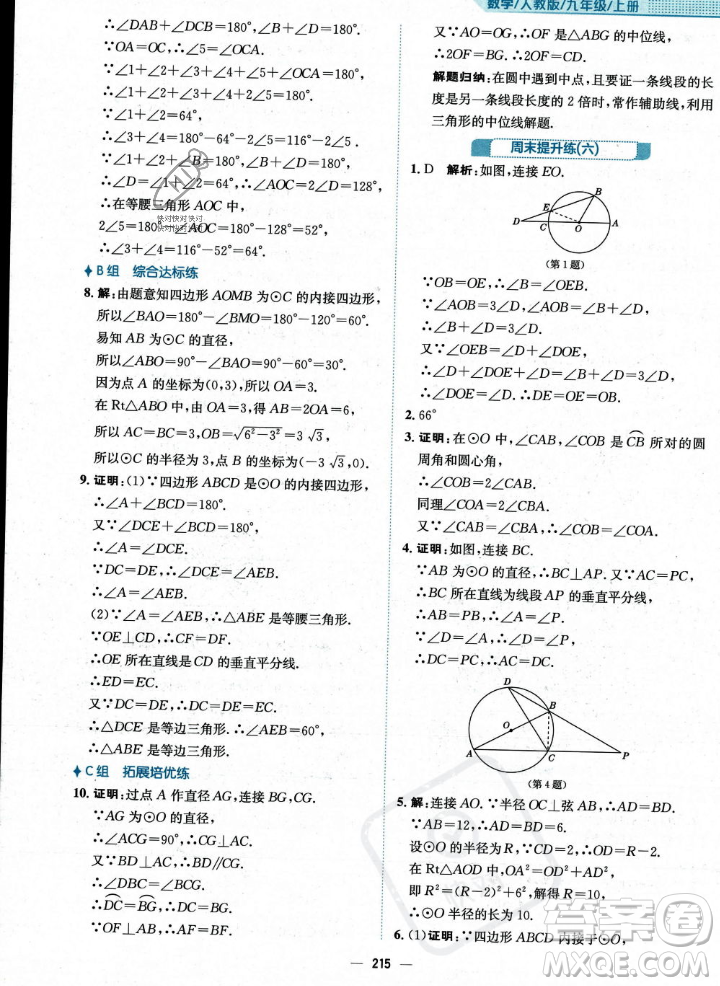 数学/人教版/九年级/上册
∴∠ADC+∠5=180°-64°=116°.
∵OA=OC,∴∠5=∠OCA.
∵∠1+∠2+∠3+∠4+∠5+∠OCA
=180°,
∴∠1+∠2=64°,
∴∠3+∠4=180°-64°-2∠5,
∴∠3+∠4=116°-2∠5.
∵∠D=180°-∠3-∠4,
∴∠D=180°-116°+2∠5,
∴∠D=64°+2∠5.
∴∠AOC=2∠D=2×64°=128°,
∴在等腰三角形AOC中,
2∠5=180°-∠AOC=180°-128°=52°,
∴∠3+∠4=116°-52°=64°.
B组 综合达标练
8. 解:由题意知四边形AOMB为⊙C的内接四边形,
所以∠BAO=180°-∠BMO=180°-120°=60°.
易知AB为⊙C的直径,
所以∠ABO=90°-∠BAO=90°-60°=30°.
因为点A的坐标为(0,3),所以OA=3.
在Rt△ABO中,由OA=3,得AB=2OA=6,
所以AC=BC=3,OB=√(6²-3²)=3√3,
所以⊙C的半径为3,点B的坐标为(-3√3,0).
9. 证明:(1)∵四边形ABCD是⊙O的内接四边形,
∴∠A+∠BCD=180°.
又∵∠DCE+∠BCD=180°,
∴∠A=∠DCE.
∵DC=DE,∴∠DCE=∠AEB.
∴∠A=∠AEB.
(2)∵∠A=∠AEB,∴△ABE是等腰三角形.
∵OE⊥CD,∴CF=DF.
∴OE所在直线是CD的垂直平分线.
∴ED=EC.
又∵DC=DE,∴DC=DE=EC.
∴△DCE是等边三角形,∴∠AEB=60°,
∴△ABE是等边三角形.
C组 拓展培优练
10. 证明:过点A作直径AG,连接BG,CG.
∵AG为⊙O的直径,
∴∠ACG=90°,∴CG⊥AC.
又∵BD⊥AC,∴BD∥CG.
∴DC=BG,∴DC=BG.
又∵AO=OG,OF是△ABG的中位线,
∴2OF=BG.∴2OF=CD.
解题归纳:在圆中遇到中点,若要证一条线段的
长度是另一条线段长度的2倍时,常作辅助线,利用
三角形的中位线解题.
周末提升练(六)
1. D 解析:如图,连接EO.
B
E
D
C
O
A
(第1题)
∵OB=OE,∴∠B=∠OEB.
∵∠AOB=∠B+∠D=3∠D,
∴∠OEB+∠D=3∠D.
又∵∠OEB=∠D+∠DOE,
∴∠D+∠DOE+∠D=3∠D,
∴∠DOE=∠D,∴DE=EO=OB.
2. 66°
3. 证明:在⊙O中,∠CAB,∠COB是CB所对的圆
周角和圆心角,
∴∠COB=2∠CAB.
同理∠COA=2∠CBA.
又∵∠COB=2∠COA,∴∠CAB=2∠CBA.
4. 证明:如图,连接BC.
∵AB为⊙O的直径,∴BC⊥AP.又∵PC=AC,
∴BC所在直线为线段AP的垂直平分线,
∴AB=PB,∴∠A=∠P.
∵∠A=∠D,∴∠D=∠P,
∴DC=PC.
D
B
O
A
C
P
(第4题)
5. 解:连接AO.∵半径OC⊥弦AB,∴AD=BD.
∵AB=12,∴AD=BD=6.
设⊙O的半径为R,∵CD=2,∴OD=R-2.
在Rt△AOD中,OA²=OD²+AD²,
即R²=(R-2)²+6²,解得R=10,
∴⊙O半径的长为10.
6. (1)证明:∵四边形ABCD内接于⊙O,
215
答案圈
MXQE.COM